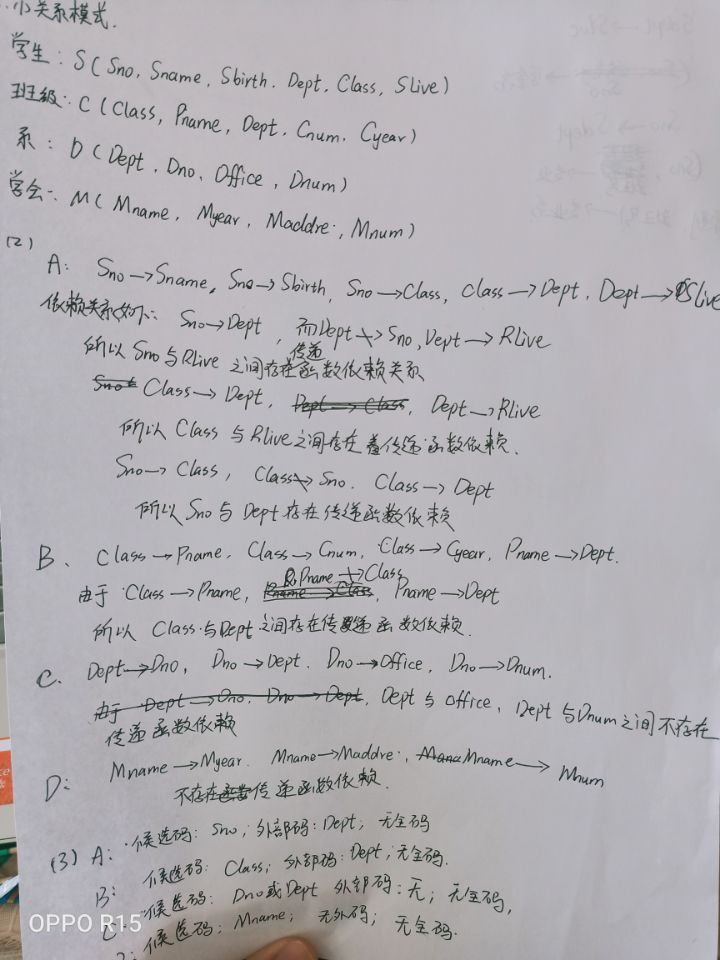 小关系模式.
学生: S( Sno, Sname, Sbirth, Dept, Class, SLive)
班级: C ( Class, Pname, Dept, Cnum, Cyear)
系: D ( Dept, Dno, Office, Dnum)
学会: M( Mname, Myear, Maddre, Mnum)
(2)
A: Sno→Sname, Sno→Sbirth, Sno→Class, Class→Dept, Dept→SLive
依赖关系如下: Sno→Dept, 而Dept↛Sno, Dept→RLive
所以 Sno 与 RLive 之间存在传递函数依赖关系
Class→Dept, Dept→RLive
所以 Class 与 RLive 之间存在着传递函数依赖.
Sno→Class, Class↛Sno. Class→Dept
所以 Sno 与 Dept 存在传递函数依赖
B. Class→Pname, Class→Cnum, Class→Cyear, Pname→Dept.
由于 Class→Pname, Pname↛Class, Pname→Dept
所以 Class 与 Dept 之间存在传递函数依赖.
C. Dept→Dno, Dno→Dept. Dno→Office, Dno→Dnum.
由于 Dept→Dno, Dno→Dept, Dept 与 Office, Dept 与 Dnum 之间不存在
传递函数依赖
D: Mname→Myear. Mname→Maddre, Mname→Mnum
不存在传递函数依赖.
(3) A: 候选码: Sno; 外部码: Dept; 无全码
B: 候选码: Class; 外部码: Dept; 无全码.
C 候选码: Dno或Dept 外部码: 无; 无全码,
候选码: Mname; 无外码; 无全码.
OPPO R15